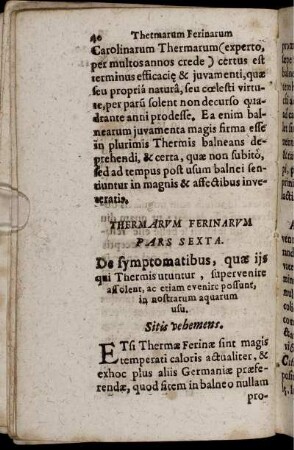 40 Thermarum Ferinarum
Carolinarum Thermarum (experto,
per multos annos crede) certus est
terminus efficaciȩ & juvamenti, quæ
seu propriâ naturâ, seu cœlesti virtu-
te, per parū solent non decurso qua-
drante anni prodesse. Ea enim bal-
nearum juvamenta magis firma esse
in plurimis Thermis balneans de-
prehendi, & certa, quæ non subitò,
sed ad tempus post usum balnei sen-
duntur in magnis & affectibus inve-
veratis.
THERMARVM FERINARVM
PARS SEXTA.
De symptomatibus, quæ ijs
qui Thermis utuntur, supervenire
assolent, ac etiam evenire possunt,
in nostrarum aquarum
usu.
Sitis vehemens.
ETsi Thermæ Ferinæ sint magis
temperati caloris actualiter, &
exhoc plus aliis Germaniæ præfe-
rendæ, quod sitem in balneo nullam
pro-